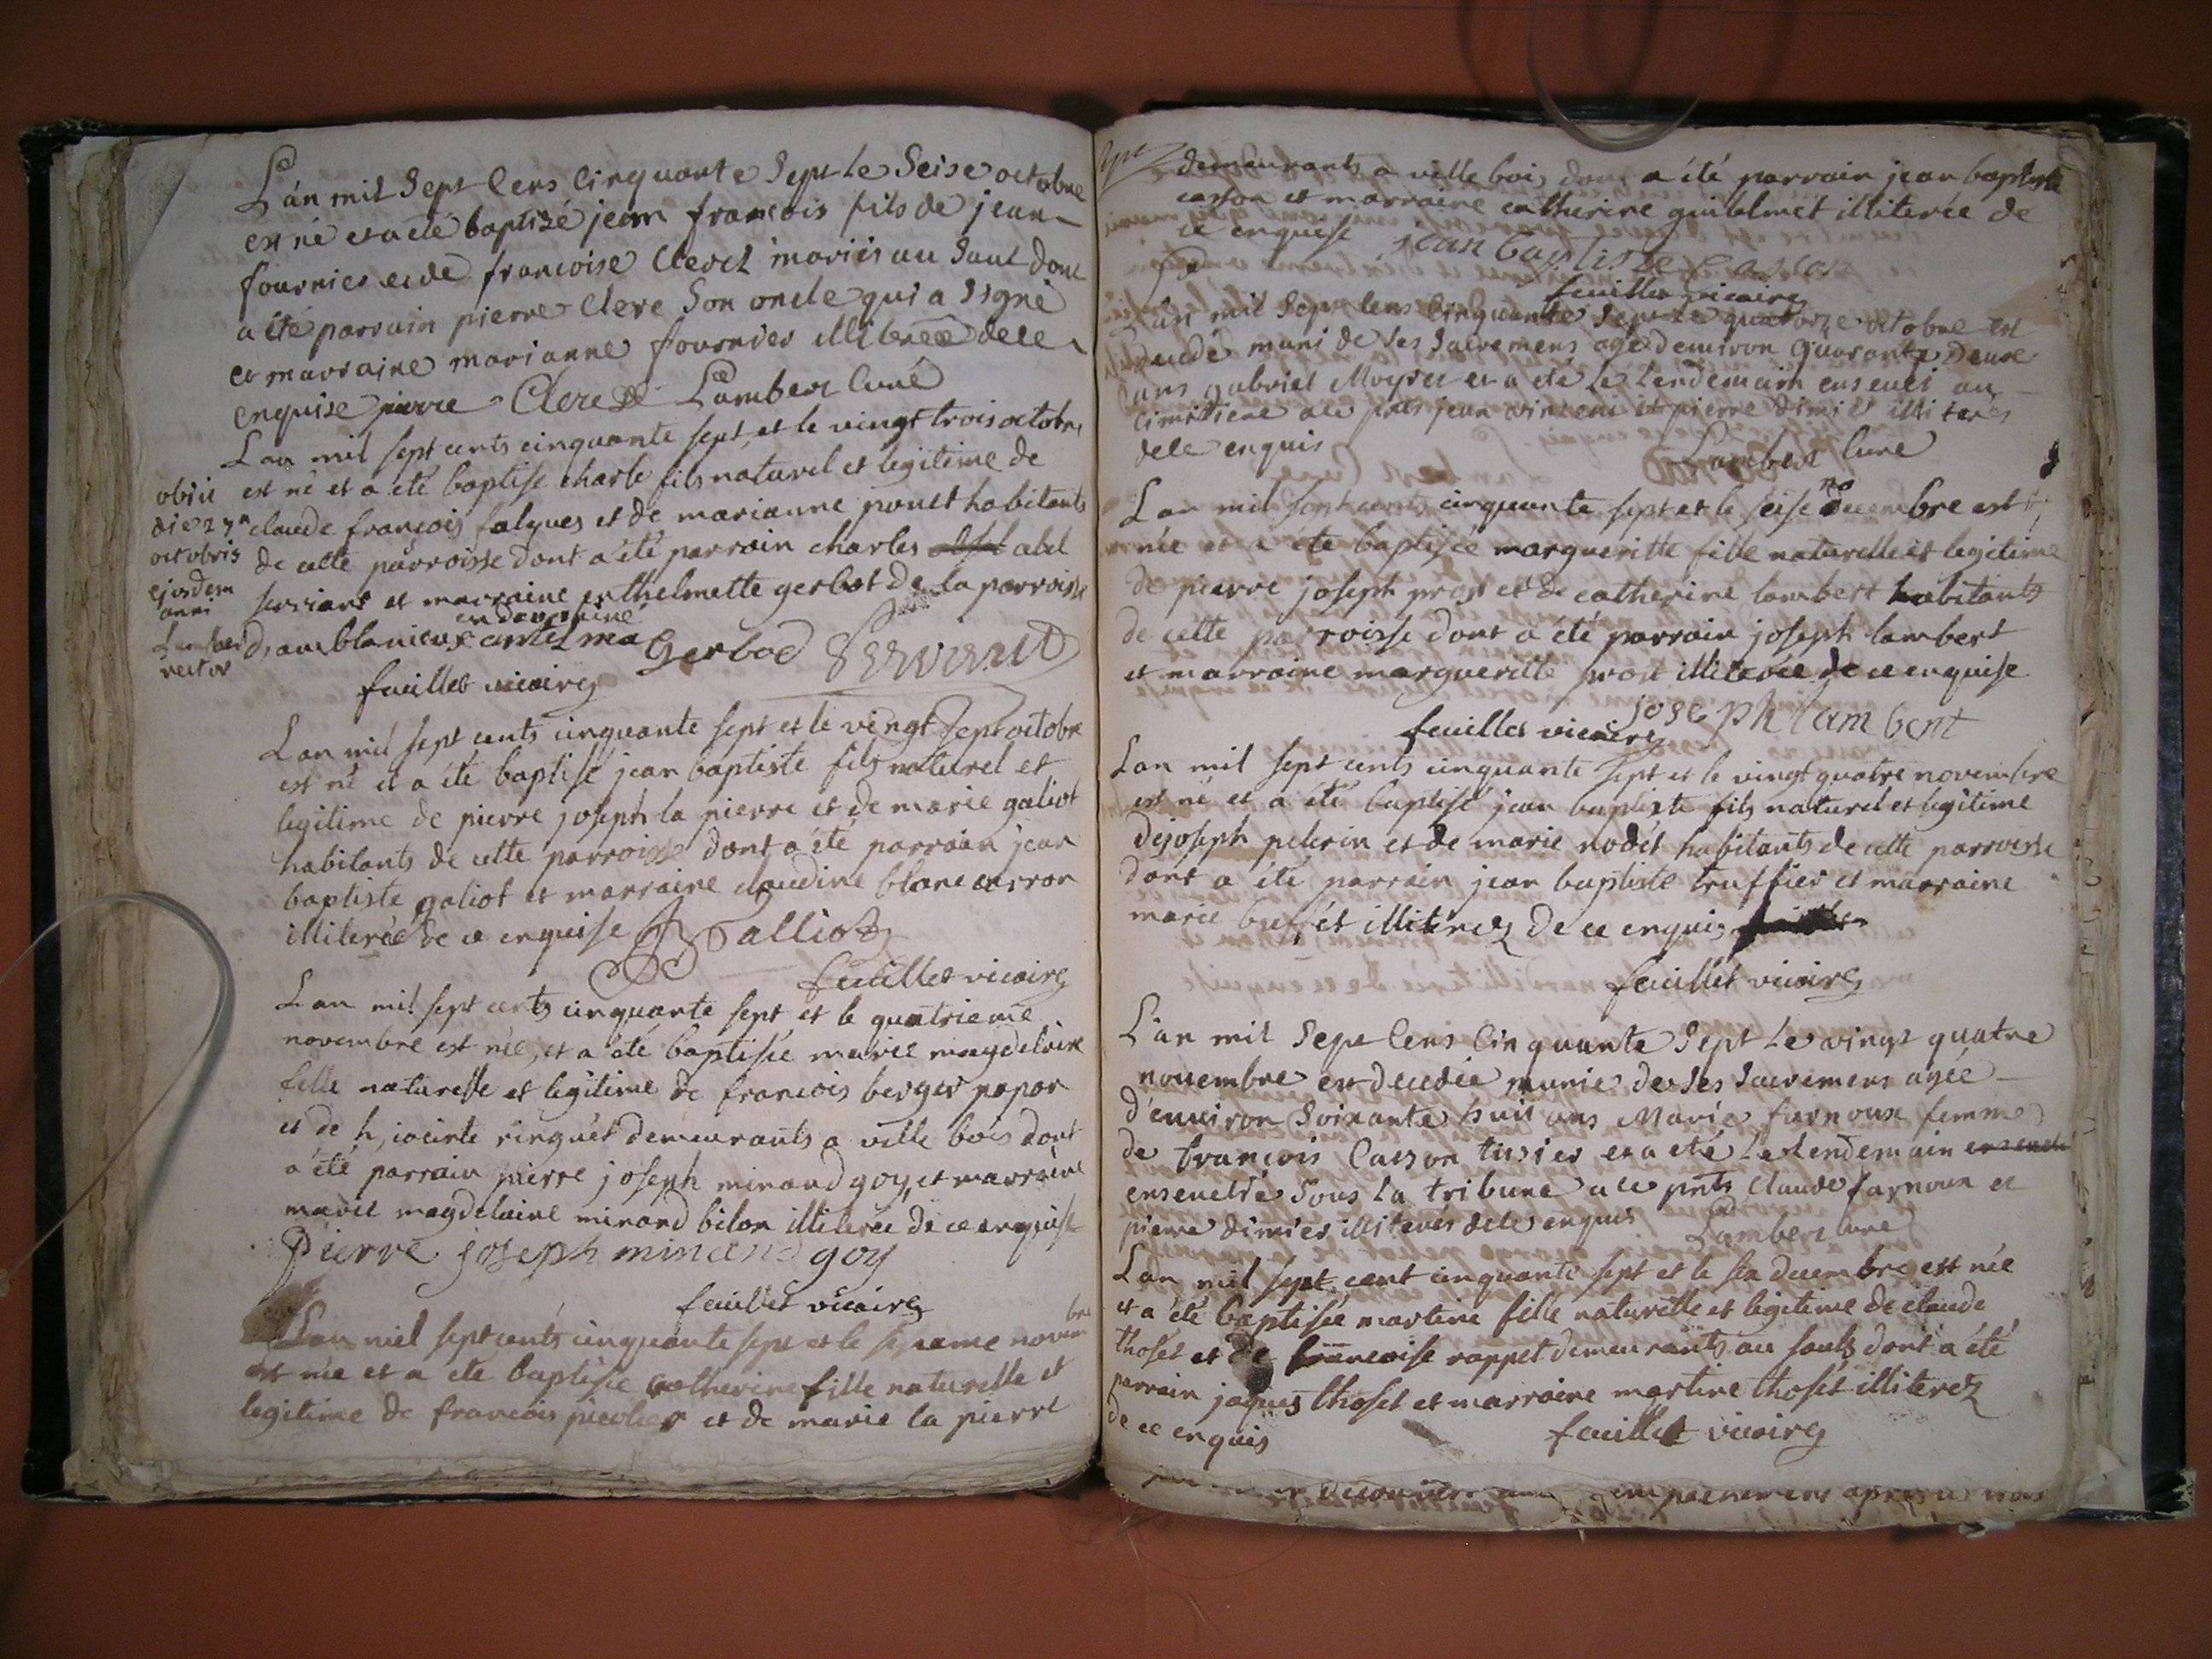 L'án mil Sept Cens Cinquante Sept Le Seise octobre
est né et a été baptizé jean francois fils de jean
fournier et de francoise Clerct mariés au Saut dont
a été parrain pierre Clere Son oncle qui a Signé
et marraine marianne fournier illiterée de ce
enquise pierre Clere Lambert Curé
Lan mil sept cents cinquante sept et le vingt trois octobre
est né et a été baptisé charle fils naturel et legitime de
claude françois falques et de marianne ponet habitants
de cette parroisse dont a été parrain charles abel
servant et marraine enthelmette gerbot de la parroisse
en dauphiné
de blanieux antelma Gerbod Servant
feuillet vicaire
obiit
die 27a
octobris
ejusdem
anni
Lambert
rector
Lan mil sept cents cinquante sept et le vingt sept octobre
est né et a été baptisé jean baptiste fils naturel et
legitime de pierre joseph la pierre et de marie galiot
habitants de cette parroisse dont a été parrain jean
baptiste galiot et marraine claudine blanc carron
illiterée de ce enquise Galliot
feuillet vicaire
Lan mil sept cents cinquante sept et le quatrieme
novembre est née, et a été baptisée marie magdelaine
fille naturelle et legitime de francois berger papor
et de hiacinte ringuet demeurants a ville bois dont
a été parrain pierre joseph minand goy, et marraine
marie magdelaine minand bilon illiterée de ce enquise
Pierre joseph minand goy
feuillet vicaire
Lan mil sept cents cinquante sept et le novembre
est née et a été baptisée catherine fille naturelle et
legitime de francois picolier et de marie la pierre
demeurants a ville bois dont a été parrain jean baptiste
casson et marraine catherine guillelmet illiterée de
ce enquise jean baptiste casson
feuillet vicaire
L'an mil Sept Cens Cinquante Sept Le quatorze octobre est
decedé muni de Ses Sacremens agé denviron quarante Deux
ans gabriel Moyret et a été Le Lendemain enseveli au
Cimitiere a ce pnts jean vincent et pierre dimier illiterés
de ce enquis Lambert Curé
Lan mil sept cents cinquante sept et le seise novembre est
née et a été baptisée margueritte fille naturelle et legitime
de pierre joseph prost et de catherine lambert habitants
de cette parroisse dont a été parrain joseph lambert
et marraine margueritte prost illiterée de ce enquise
joseph lambert
feuillet vicaire
Lan mil sept cents cinquante sept et le vingt quatre novembre
est né et a été baptisé jean baptiste fils naturel et legitime
de joseph pelerin et de marie nodet habitants de cette parroisse
dont a été parrain jean baptiste truffier et marraine
marie buffet illiterez de ce enquis
feuillet vicaire
L'an mil Sept Cens Cinquante Sept Le vingt quatre
novembre est decedée munie de Ses Sacremens agée
d'environ Soixante huit ans Marie farnoux femme
de françois Casson tissier et a eté Le Lendemain
ensevelie Sous La tribune a ce pnts Claude farnoux et
pierre dimier illiterés de ce enquis Lambert Curé
Lan mil sept cent cinquante sept et le six decembre est née
et a été baptisée martine fille naturelle et legitime de claude
thoset et de francoise rappet demeurants au sault dont a été
parrain jaques thoset et marraine martine thoset illiterez
de ce enquis feuillet vicaire